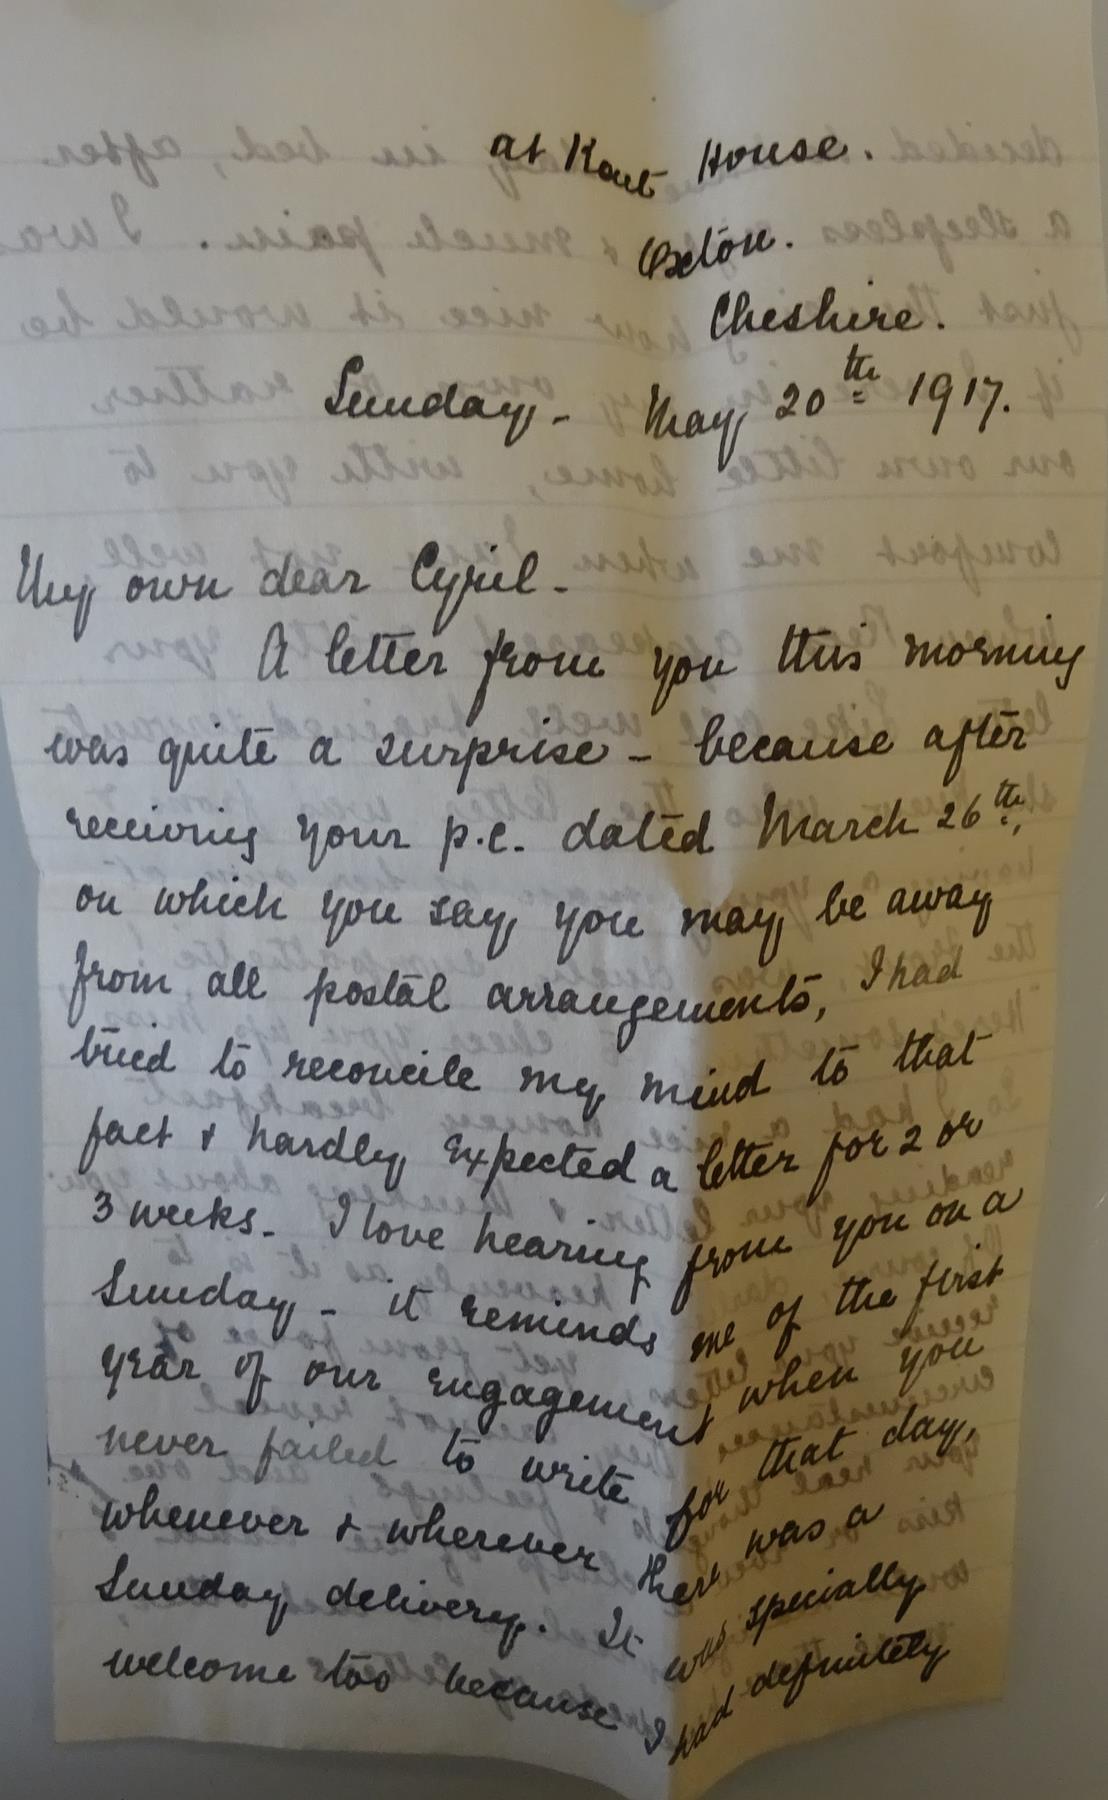 at Kent House.
Oxton.
Cheshire.
Sunday, - May 20th 1917.
My own dear Cyril -
A letter from you this morning
was quite a surprise - because after
receiving your p.c. dated March 26th,
on which you say, you may be away
from all postal arrangements, I had
tried to reconcile my mind to that
fact & hardly expected a letter for 2 or
3 weeks. I love hearing from you on a
Sunday - it reminds me of the first
year of our engagement when you
never failed to write for that day,
whenever & wherever there was a
Sunday delivery. It was specially
welcome too because I had definitely